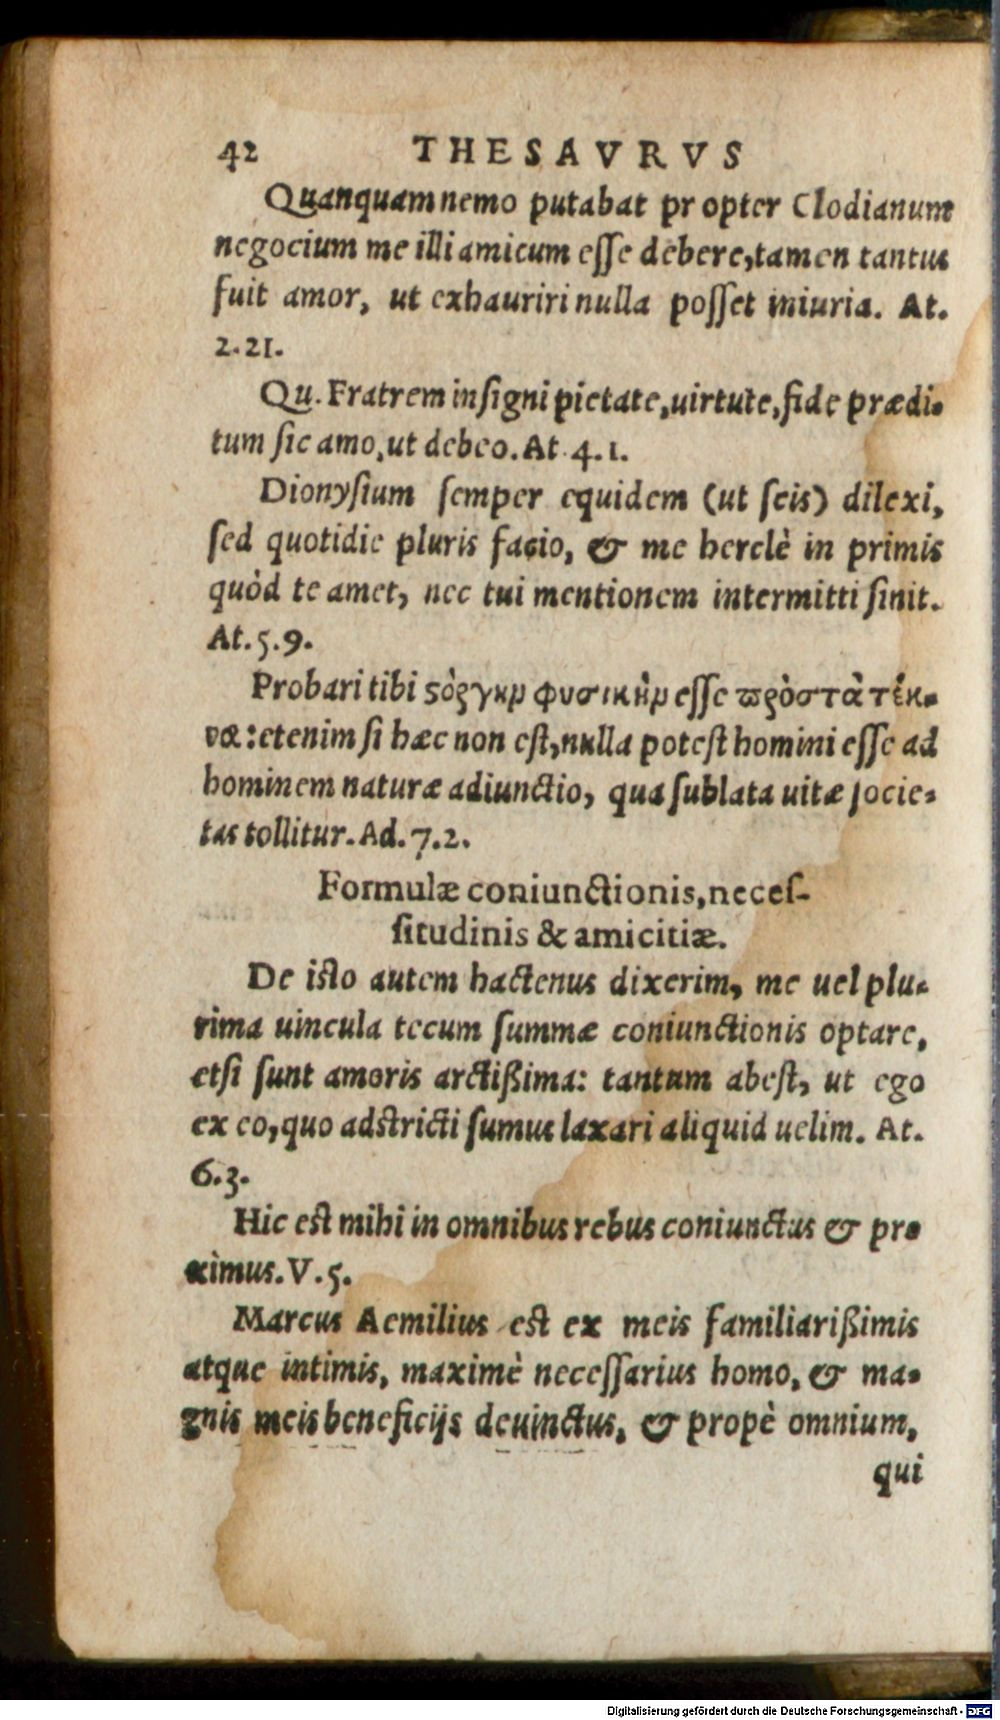 42 THESAVRVS
Quanquam nemo putabat propter Clodianum
negocium me illi amicum esse debere, tamen tantus
fuit amor, ut exhauriri nulla posset iniuria. At.
2.21.
Qu. Fratrem insigni pietate, uirtute, fide prædi-
tum sic amo, ut debeo. At. 4.1.
Dionysium semper equidem (ut scis) dilexi,
sed quotidie pluris facio, & me herclè in primis
quòd te amet, nec tui mentionem intermitti sinit.
At. 5.9.
Probari tibi ϛὸργην φυσικὴν esse πρὸς τὰ τέκ-
να: etenim si hæc non est, nulla potest homini esse ad
hominem naturæ adiunctio, qua sublata uitæ socie-
tas tollitur. Ad. 7.2.
Formulæ coniunctionis, neces-
situdinis & amicitiæ.
De isto autem hactenus dixerim, me uel plu-
rima uincula tecum summæ coniunctionis optare,
etsi sunt amoris arctißima: tantum abest, ut ego
ex eo, quo adstricti sumus laxari aliquid uelim. At.
6.3.
Hic est mihi in omnibus rebus coniunctus & pro-
ximus. V. 5.
Marcus Aemilius est ex meis familiarißimis
atque intimis, maximè necessarius homo, & ma-
gnis meis beneficijs deuinctus, & propè omnium,
qui
Digitalisierung gefördert durch die Deutsche Forschungsgemeinschaft - DFG